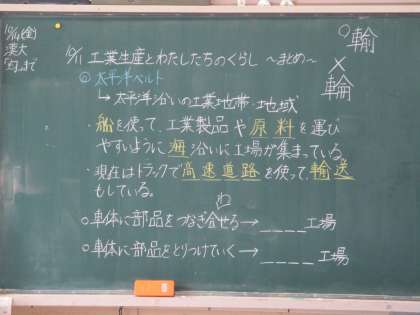 10/14(金)
漢大
まで
10/11 工業生産とわたしたちのくらし ～まとめ～
○輸
×
輪
◎ 太平洋ベルト
↳ 太平洋沿いの工業地帯・地域
船を使って、工業製品や原料を運び
やすいように海沿いに工場が集まっている。
・現在はトラックで高速道路を使って輸送
もしている。
わ
○車体に部品をつなぎ合せる→____工場
○車体に部品をとりつけていく→____工場